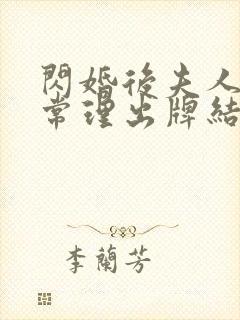 閃婚後夫人
常理出牌結
李蘭芳